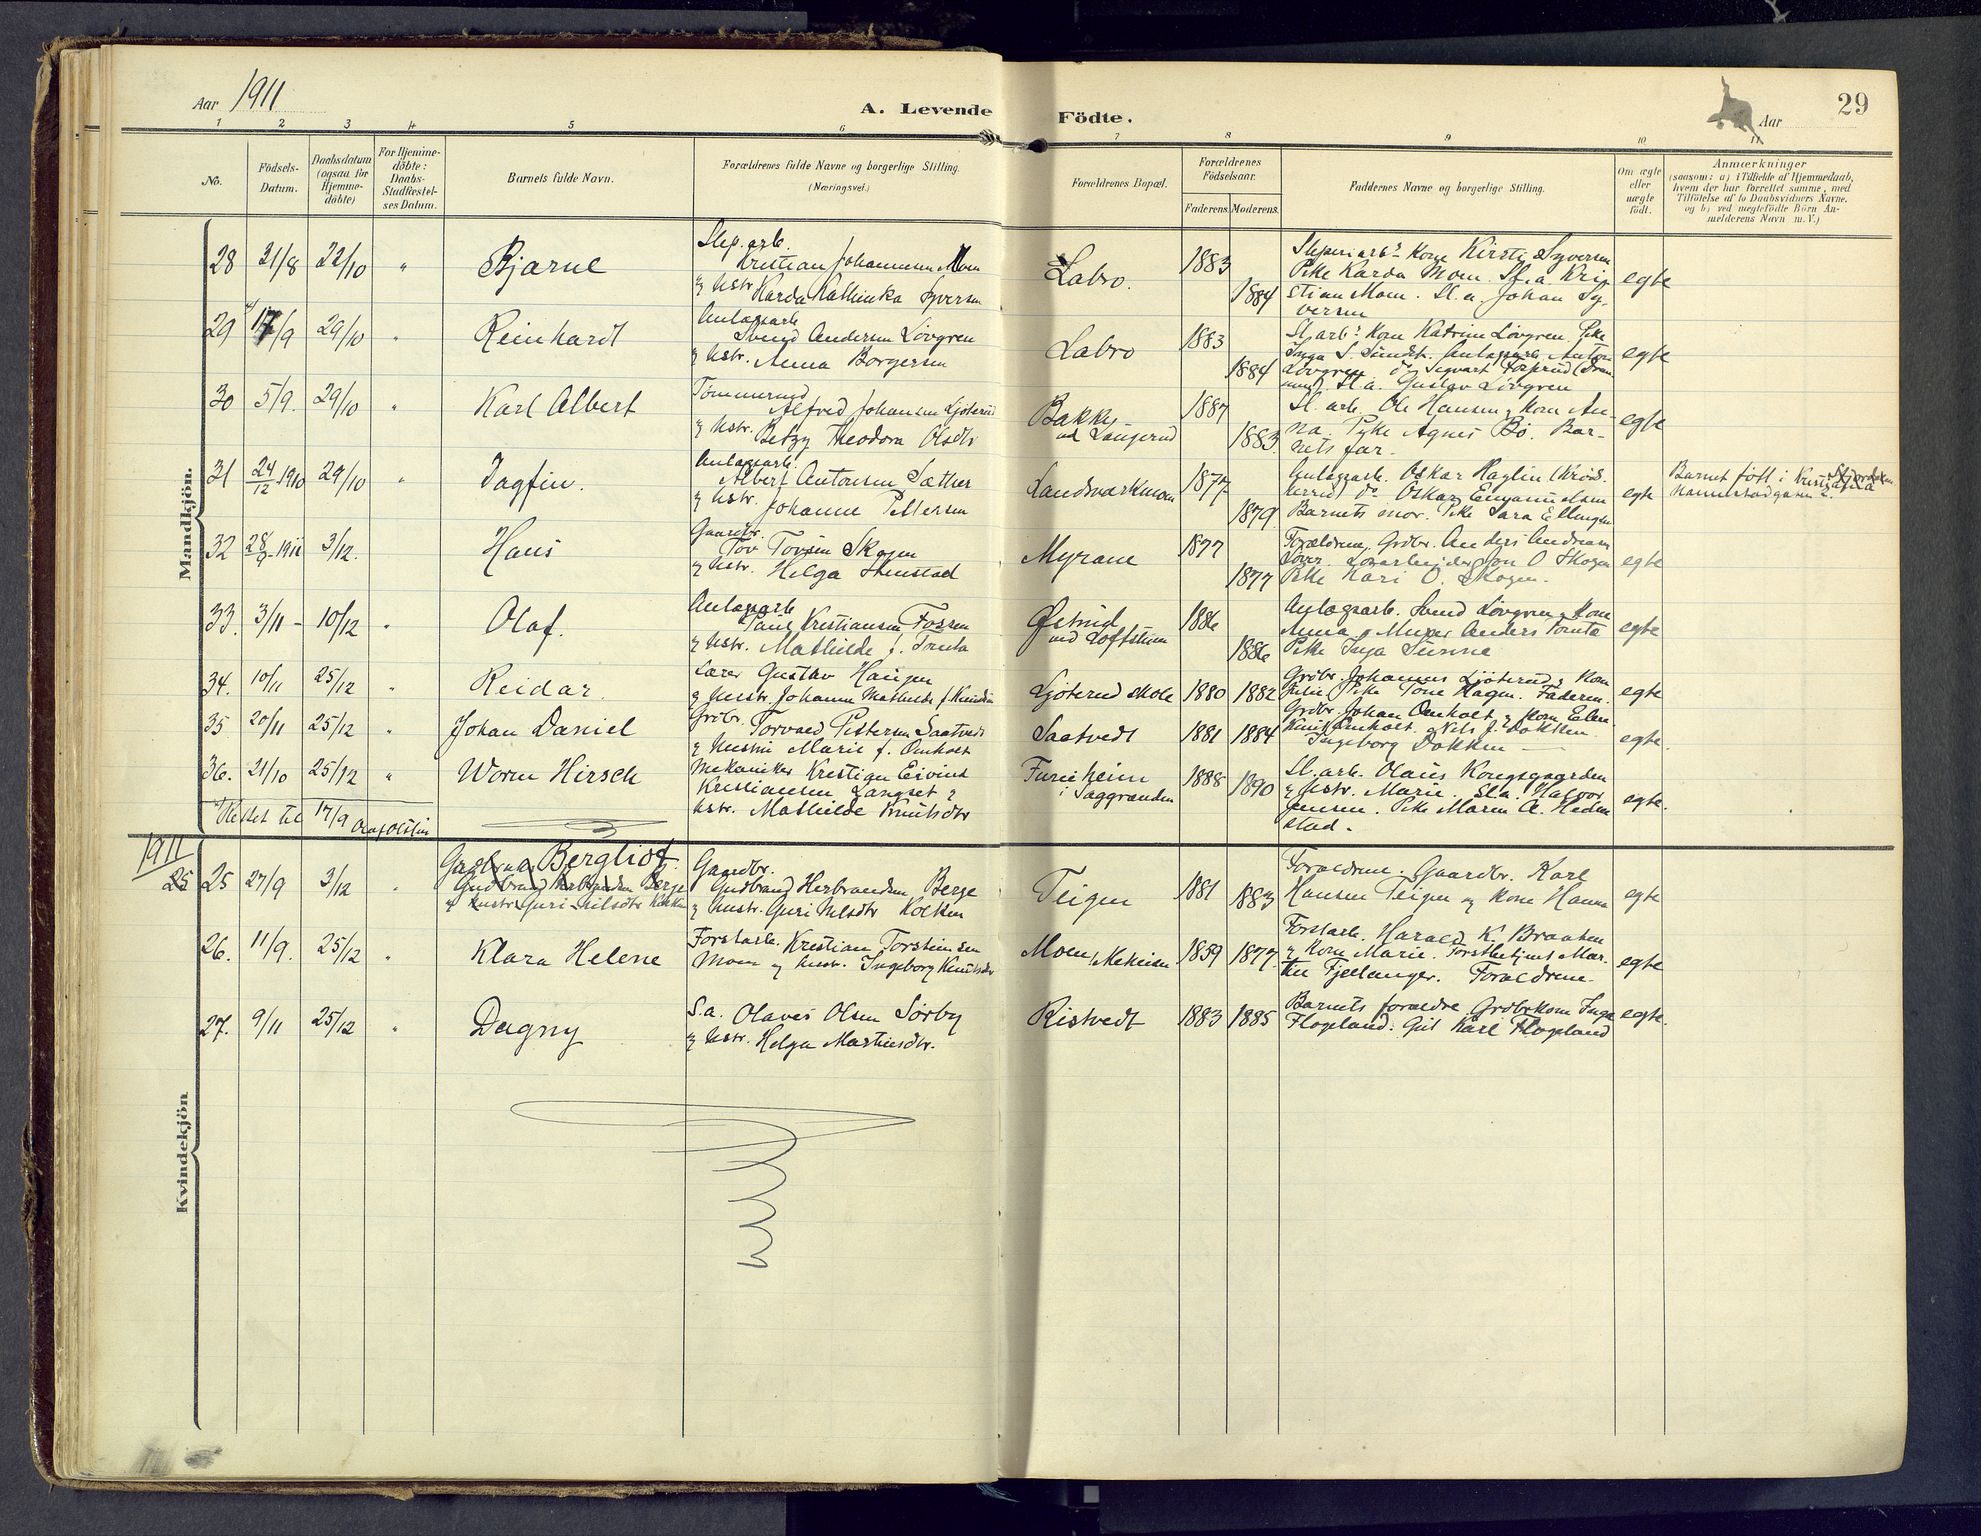 Aar 1911
A. Levende Födte.
Aar
29
1 2 3 4 5 6 7 8 9 10 11
No.
Födsels-Datum.
Daabsdatum (ogsaa for Hjemmedöbte)
For Hjemmedöbte: Daabs-Stadfæstelses Datum.
Barnets fulde Navn.
Forældrenes fulde Navne og borgerlige Stilling.
(Næringsvei.)
Forældrenes Bopæl.
Forældrenes Födselsaar.
Faderens. Moderens.
Faddernes Navne og borgerlige Stilling.
Om ægte eller uægte födt.
Anmærkninger
(saasom: a) i Tilfælde af Hjemmedaab,
hvem der har forrettet samme, med
Tilföielse af to Daabsvidners Navne.
og b) ved uægtefödte Börn Anmelderens Navn m. V.)
Mandkjön.
28 21/8 22/10 " Bjarne
Slip.arb.
Kristian Johannesen Moen
og hstr. Karda Kathinka Syversen
Labro. 1883 1884
Sliperiarbs kone Kirsti Syversen
Pike Karda Moen. Sl.a Kri-
stian Moen. Sl.a. Johan Sy-
versen
egte
29 17/9 29/10 " Reinhardt
Anlægsarb.
Svend Andersen Lövgren
og hstr. Anna Borgersen
Labro 1883 1884
Sl.arbs kone Katrine Lövgren Pike
Inga S. Sundet. Anlægsarb. Anton
Lövgren do Sigvart Fosprud (Dram-
men). Sl.a. Gustav Lövgren
egte
30 5/9. 29/10 " Karl Albert
Tømmermd
Alfred Johansen Ljöterud
og hstr. Betzy Theodora Olsdtr
Bakke
ved Langerud 1887 1883.
Sl. arb. Ole Hansen og kone An-
na. Pike Agnes Bö. Bar-
nets far.
egte
31 24/12 1910 29/10 " Dagfin.
Anlægsarb.
Albert Antonsen Sæther
og hstr. Johanne Pettersen
Landsværkmoen 1877 1879.
Anlægsarb. Oskar Haglin
do Oskar Emanuelsen
Barnets mor. Pike Sara Ellingsen
egte
Barnet født i Kristiania
32 28/9-1911 3/12. Hans
Gaardbr.
Tov Tovsen Skogen
og hstr. Helga Stenstad
Myrane 1877 1877
Forældrene. Grdbr. Anders Andreasen
Jon O Skogen
Pike Kari O. Skogen.
egte
33. 3/11 - 10/12 " Olaf.
Anlægsarb
Paul Kristiansen Fossen
og hstr. Mathilde f. Tomta
Østrud
ved Loftstuen 1886 1886
Anlægsarb. Svend Lövgren og kone
Anna. Murer Anders Tomta
Pike Inga Tunne
egte
34. 10/11 25/12 " Reidar.
Lærer Gustav Haugen
og hustr. Johanne Mathilde f. Knudsen
Ljöterud skole 1880 1882
Grdbr. Johannes Ljöterud og kone
Julie. Pike Tone Hagen. Faderen.
egte
35 20/11 25/12 " Johan Daniel
Grdbr.
Torvald Pettersen Saatvedt
og hustru Marie f. Omholt
Saatvedt 1881 1884
Grdbr. Johan Omholt og kone Elen.
Knut Omholt. Nils J. Dokken.
Ingeborg Dokken
egte.
36. 21/10 25/12 " Worm Hirsch
Mekaniker Kristian Eivind
Kristiansen Langset og
hstr. Mathilde Knutsdtr
Furuheim
i Saggrenden 1888 1890
Sl.arb. Olaus Kongsgaarden
og hstr. Marie. Sl.a. Halvor
Jensen. Pike Maren A. Heden-
stad.
egte.
17/9
1911
Kvindekjön
25 25 27/9 3/12 " Bergliot
Gudbrand Herbrandsen Berge
og hustr. Guri Nilsdtr Kolken
Gaardbr.
Gudbrand Herbrandsen Berge
og hustr. Guri Nilsdtr Kolken
Teigen 1881 1883
Forældrene. Gaardbr. Karl
Hansen Teigen og kone Hanna
egte
26. 11/9. 25/12 " Klara Helene
Forstarb. Kristian Torsteinsen
Moen og hustr. Ingeborg Knutsdtr
Moen, Mekeisen 1859 1877.
Forstarb. Harald K. Braaten
og kone Marie. Forstbetjent Mar-
tin Fjellanger. Forældrene.
egte
27. 9/11 25/12 " Dagny
S.a. Olaves Olsen Sørby
og hstr. Helga Martinsdtr.
Ristvedt 1883 1885
Barnets forældre. Grdbrkone Inga
Flogland. Gut Karl Flogland
egte.